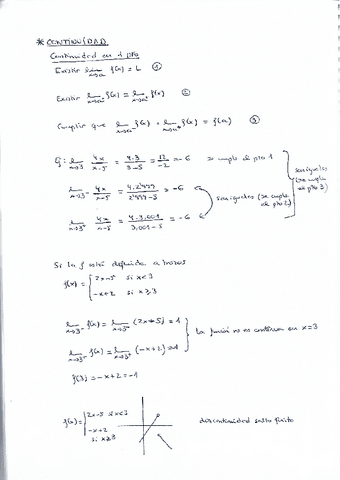 * CONTINUIDAD
Continuidad en 1 pto
Existir lim x→a f(x) = L ①
Existir lim x→a⁻ f(x) = lim x→a⁺ f(x) ②
Cumplir que lim x→a⁻ f(x) = lim x→a⁺ f(x) = f(a) ③
Ej: lim x→3 4x/x-5 = 4·3/3-5 = 12/-2 = -6 ⇒ cumple el pto 1
lim x→3⁻ 4x/x-5 = 4·2'999/2'999-5 = -6
lim x→3⁺ 4x/x-5 = 4·3,001/3,001-5 = -6
son iguales (se cumple el pto 2)
son iguales (se cumple el pto 3)
Si la f está definida a trozos
f(x) = { 2x-5 si x<3
-x+2 si x≥3
lim x→3⁻ f(x) = lim x→3⁻ (2x-5) = 1
lim x→3⁺ f(x) = lim x→3⁺ (-x+2) = -1
La función no es continua en x=3
f(3) = -x+2 = -1
f(x) = { 2x-5 si x<3
-x+2
si x≥3
discontinuidad salto finito